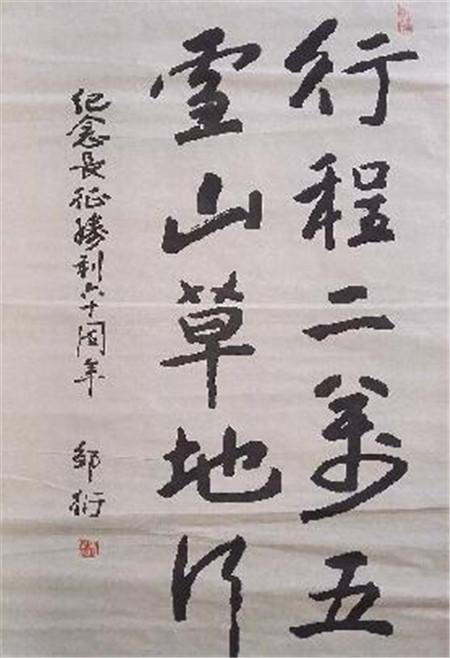 行程二萬五
雪山草地行
紀念長征勝利六十周年 邹衍